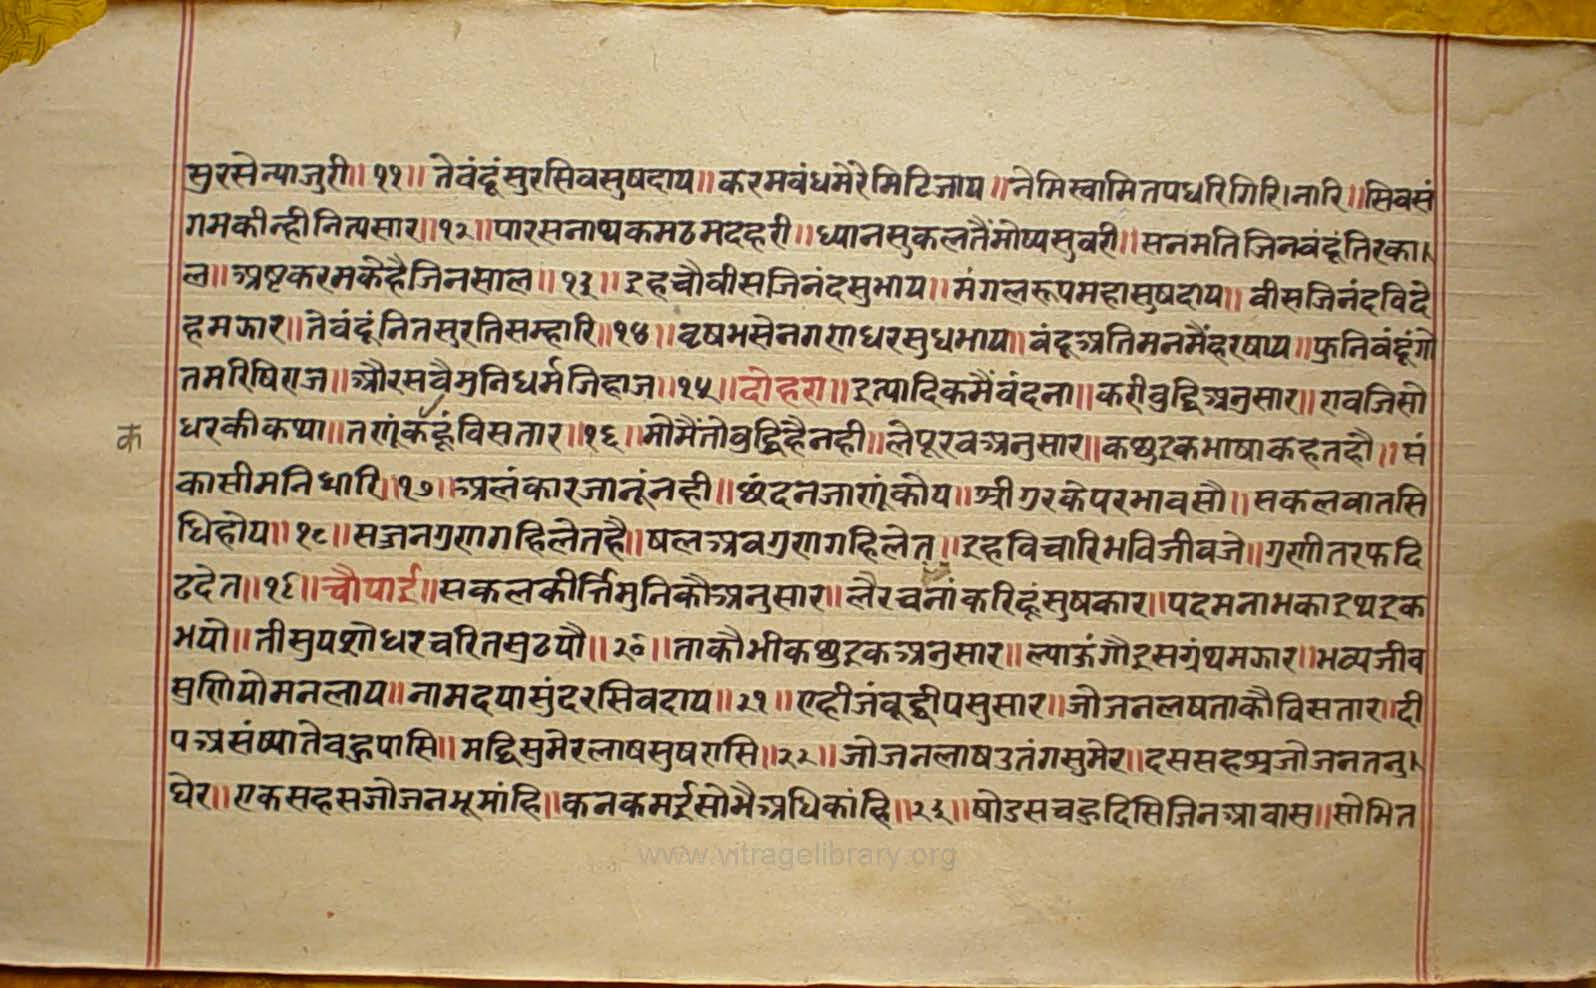 सुरसेन्याजुरी॥११॥ तेवंदूंसुरसिवसुषदाय॥करमवंधमेरेमिटिजाय॥नेमिस्वामितपधरिगिरि।नारि॥सिवसं
गमकीन्हीनित्यसार॥१२॥पारसनाथकमठमदहरी॥ध्यानसुकलतैंमोष्यसुवरी॥सनमतिजिनवंदूंतिरका।
ल॥अष्टकरमकेहैजिनसाल॥१३॥इहचौवीसजिनंदसुभाय॥मंगलरूपमहासुषदाय॥वीसजिनंदविदे
हमझार॥तेवंदूंनितसुरतिसम्हारि॥१४॥वृषभसेनगणधरसुधभाय॥वंदूअतिमनमैंहरषाय॥फुनिवंदूंगो
तमरिषिराज॥औरसवैमुनिधर्मजिहाज॥१५॥दोहरा॥इत्यादिकमैंवंदना॥करीवुद्धिअनुसार॥रावजिसो
धरकीकथा॥तणूंकहूंविसतार॥१६॥मोमैंतोवुद्धिहैनही॥लेपूरवअनुसार॥कछुइकभाषाकहतहौ॥सं
क
कासीमनिधारि॥१७॥अलंकारजानूंनही॥छंदनजाणूंकोय॥श्रीगुरकेपरभावसौ॥सकलवातसि
धिहोय॥१८॥सज्जनगुणगहिलेतहै॥षलअवगुणगहिलेत॥इहविचारिभविजीवजे॥गुणीतरफदि
ढदेत॥१९॥चौपाई॥सकलकीर्त्तिमुनिकौअनुसार॥लैरचनांकरिहूंसुषकार॥पदमनाभकाइथइक
भयो॥तीसुयशोधरचरितसुठयौ॥२०॥ताकौभीकछुइकअनुसार॥ल्याऊंगौइसग्रंथमझार॥भव्यजीव
सुणियोमनलाय॥नामदयासुंदरसिवदाय॥२१॥एहीजंवूद्वीपसुसार॥जोजनलषताकौविसतार॥दी
पअसंष्यातेवहुपासि॥मद्धिसुमेरलाषसुषरासि॥२२॥जोजनलाषउतंगसुमेर॥दससहश्रजोजनतनु।
घेर॥एकसहसजौजनभूमांहि॥कनकमईसोभैअधिकांहि॥२३॥षोडसचहुदिसिजिनआवास॥सोभित
www.vitragelibrary.org